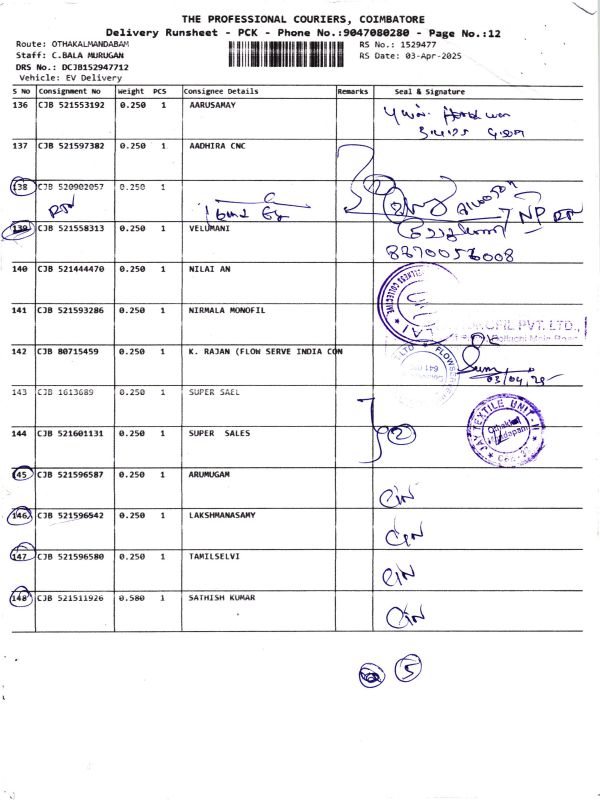 THE PROFESSIONAL COURIERS, COIMBATORE
Delivery Runsheet - PCK - Phone No.:9047080280 - Page No.:12
Route: OTHAKALMANDABAM
RS No.: 1529477
Staff: C.BALA MURUGAN
RS Date: 03-Apr-2025
DRS No.: DCJB152947712
Vehicle: EV Delivery
S No Consignment No Weight PCS Consignee Details Remarks Seal & Signature
136 CJB 521553192 0.250 1 AARUSAMAY
137 CJB 521597382 0.250 1 AADHIRA CNC
138 CJB 520902057 0.250 1
RTN NP RTN
139 CJB 521558313 0.250 1 VELUMANI
8870056008
140 CJB 521444470 0.250 1 NILAI AN
141 CJB 521593286 0.250 1 NIRMALA MONOFIL
MOFIL PVT. LTD.,
142 CJB 80715459 0.250 1 K. RAJAN (FLOW SERVE INDIA CON
03/04/25
143 CJB 1613689 0.250 1 SUPER SAEL
JAY TEXTILE UNIT-II
144 CJB 521601131 0.250 1 SUPER SALES 2
145 CJB 521596587 0.250 1 ARUMUGAM
146 CJB 521596542 0.250 1 LAKSHMANASAMY
147 CJB 521596580 0.250 1 TAMILSELVI
148 CJB 521511926 0.580 1 SATHISH KUMAR
5